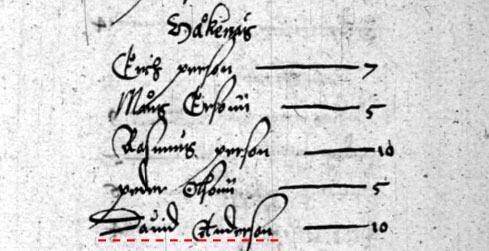 Håkenäs
Erich person — 7
Måns Ersonn — 5
Rasmus person — 10
peder Olsonn — 5
Dauid Anderson — 10